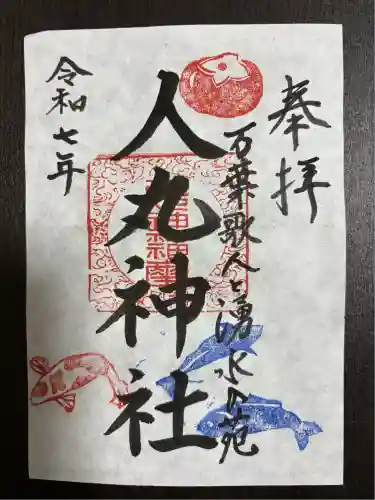 奉拝
万葉歌人と湧水の苑
人丸神社
令和七年